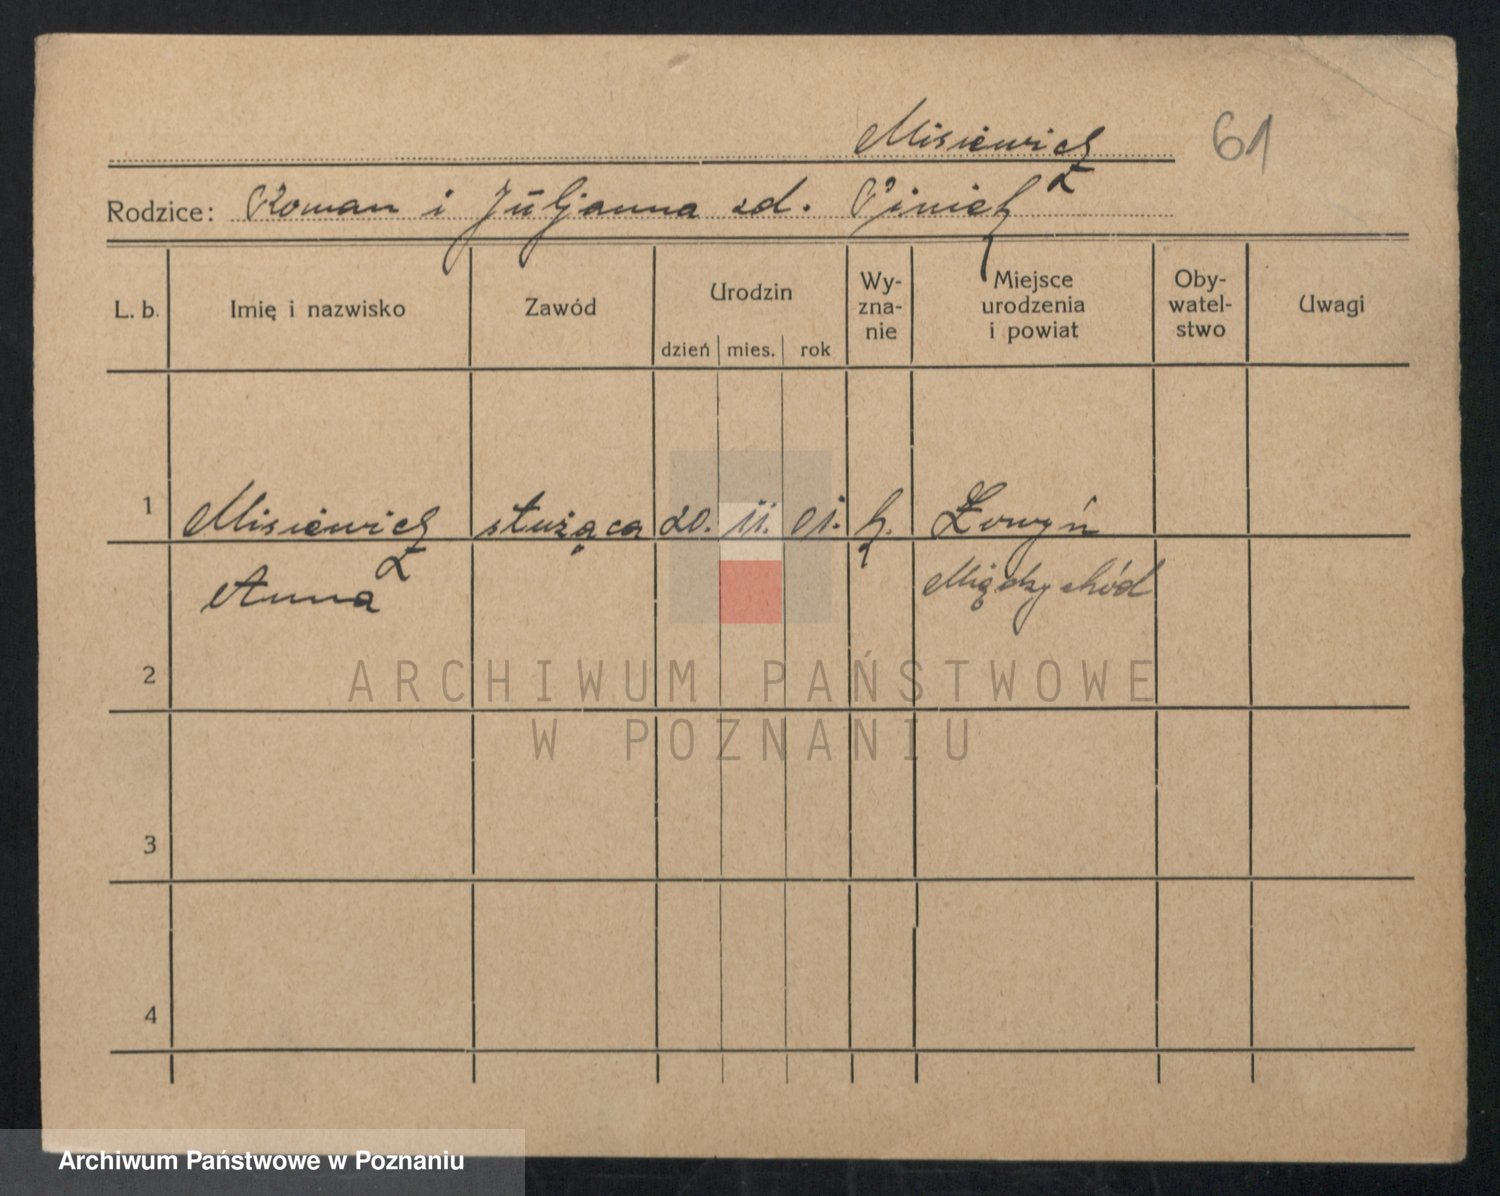 Misiewicz
61
Rodzice: Roman i Juljanna zd. Piniek
L. b. Imię i nazwisko Zawód Urodzin dzień mies. rok Wy-zna-nie Miejsce urodzenia i powiat Oby-watel-stwo Uwagi
1 Misiewicz służąca 20. 11. 01. k. Łowyń
Anna Międzychód
2
ARCHIWUM PAŃSTWOWE
W POZNANIU
3
4
Archiwum Państwowe w Poznaniu